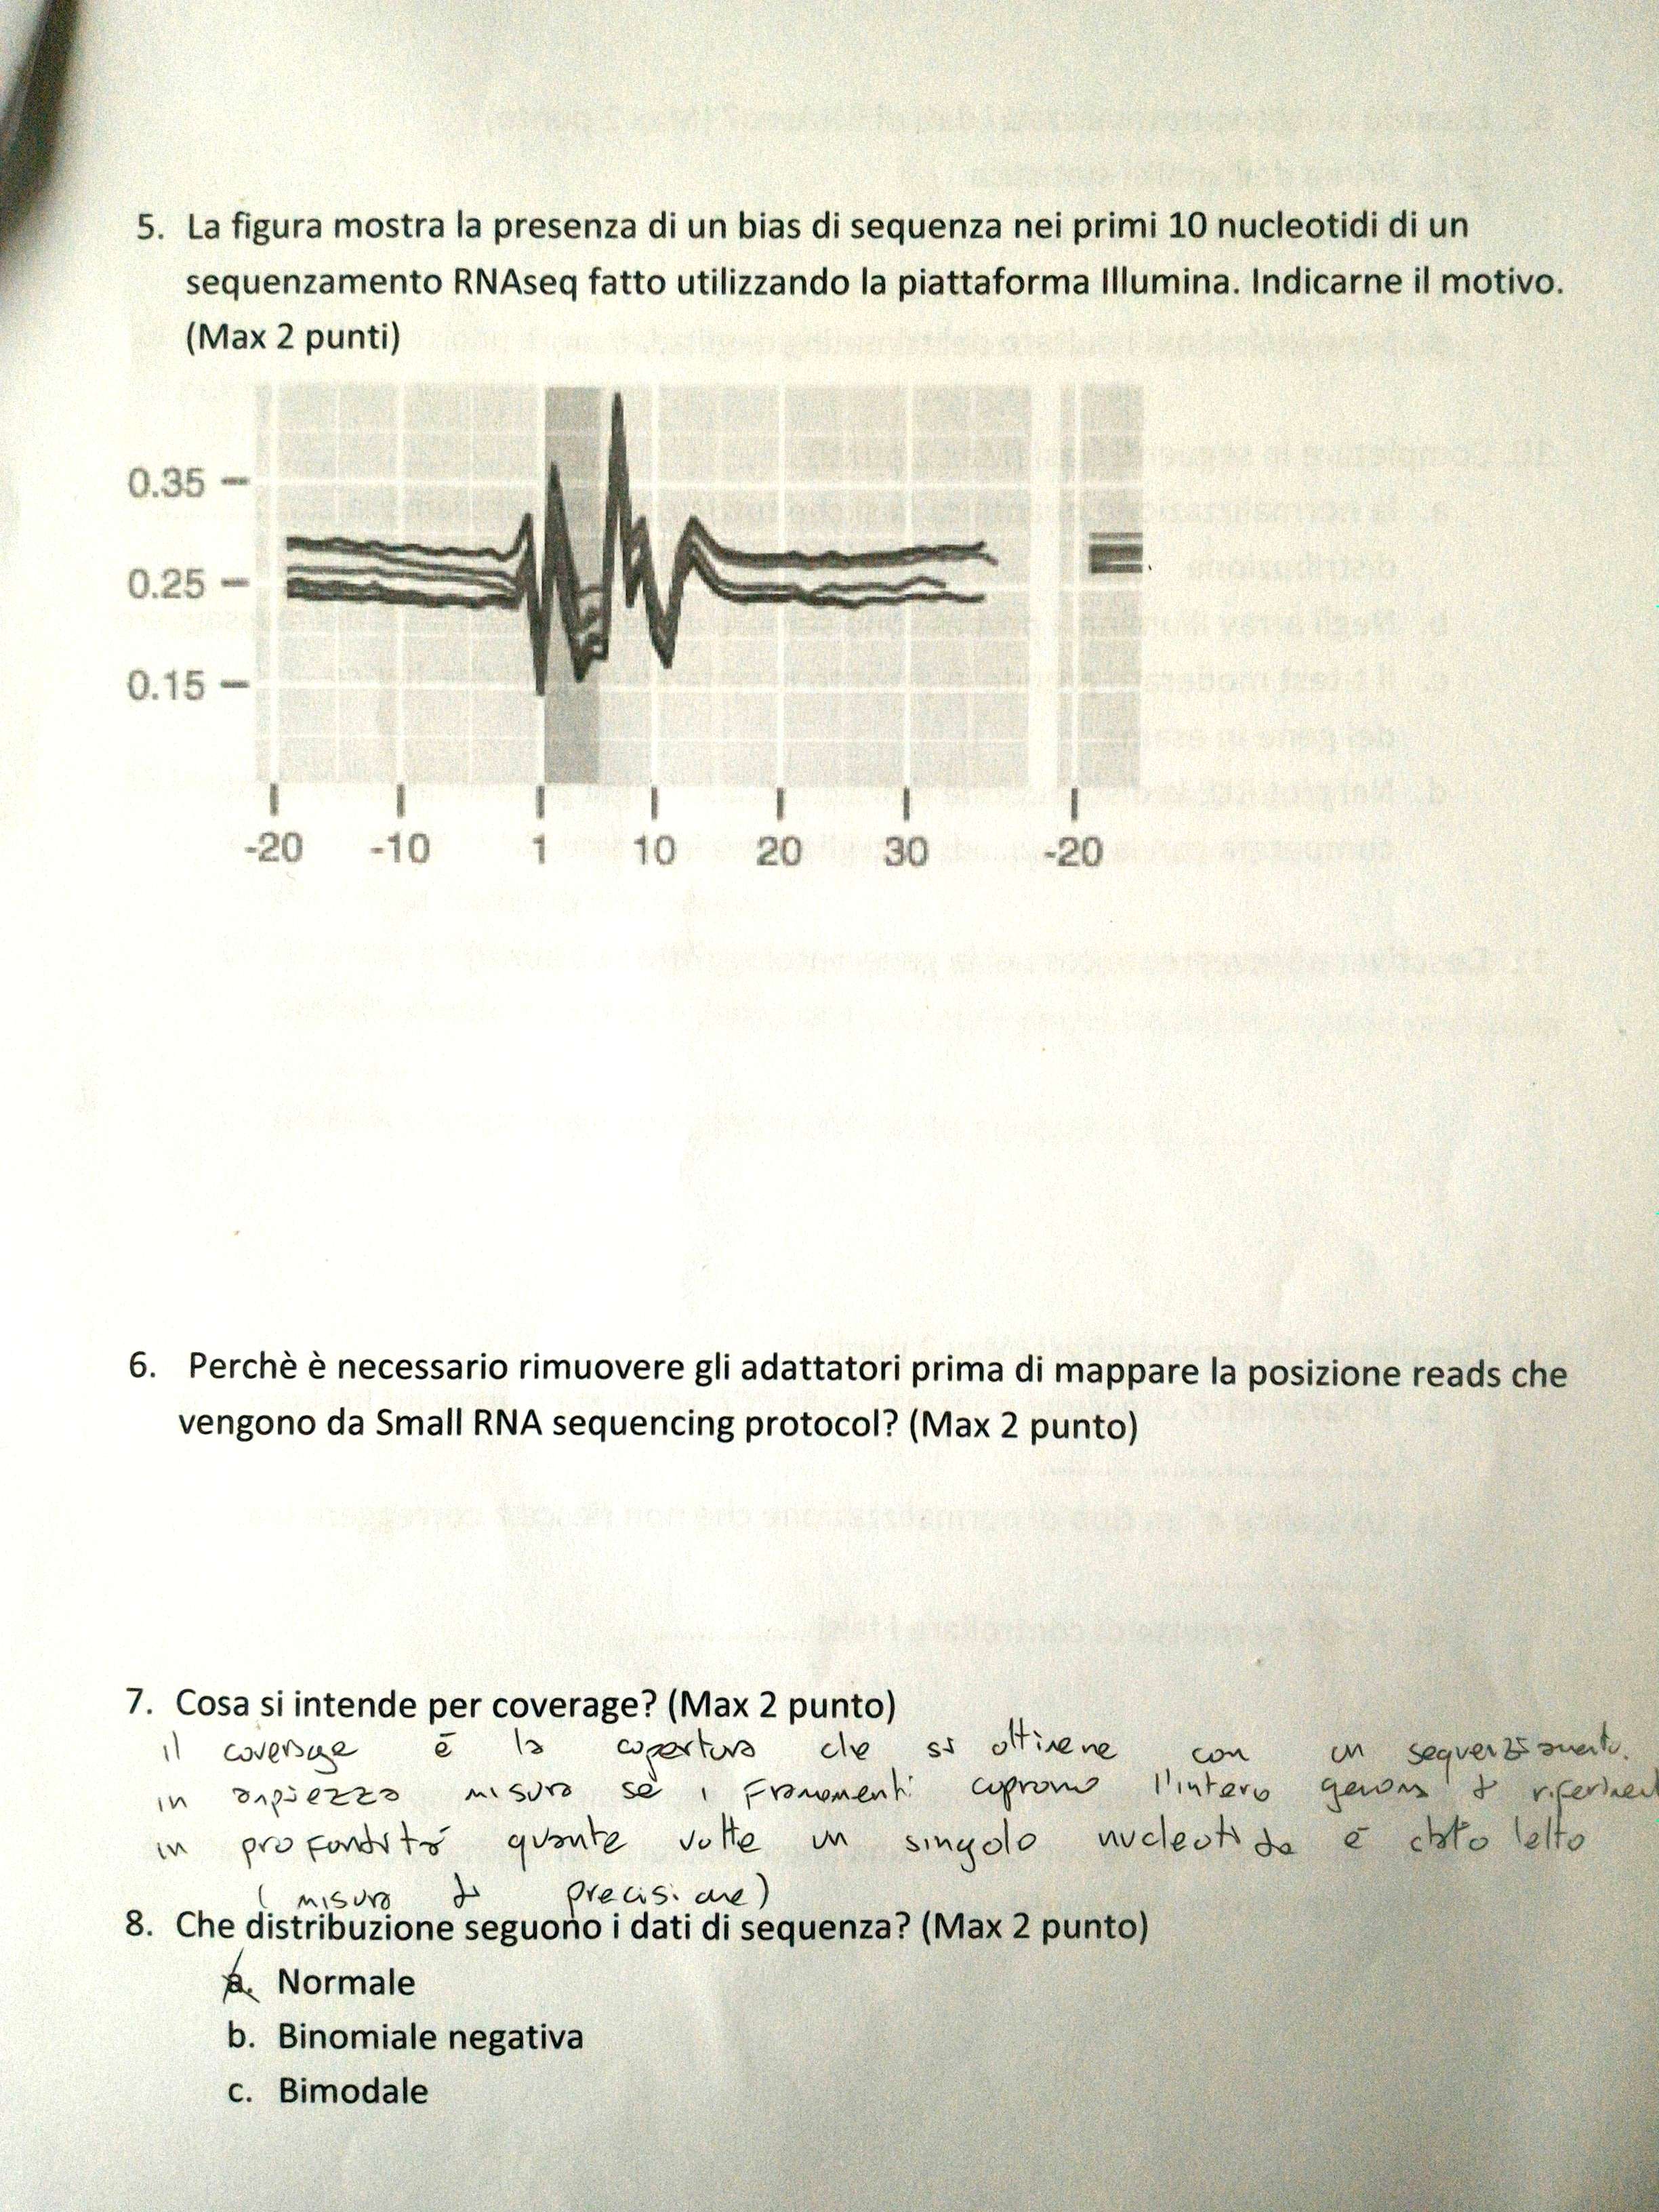 5. La figura mostra la presenza di un bias di sequenza nei primi 10 nucleotidi di un
sequenzamento RNAseq fatto utilizzando la piattaforma Illumina. Indicarne il motivo.
(Max 2 punti)
0.35
0.25
0.15
-20 -10 1 10 20 30 -20
6. Perchè è necessario rimuovere gli adattatori prima di mappare la posizione reads che
vengono da Small RNA sequencing protocol? (Max 2 punto)
7. Cosa si intende per coverage? (Max 2 punto)
il coverage è la copertura che si ottiene con un sequenziamento.
in ampiezza misura se i frammenti coprono l'intero genoma di
in profondità quante volte un singolo nucleotide è stato letto
(misura di precisione)
8. Che distribuzione seguono i dati di sequenza? (Max 2 punto)
a. Normale
b. Binomiale negativa
c. Bimodale